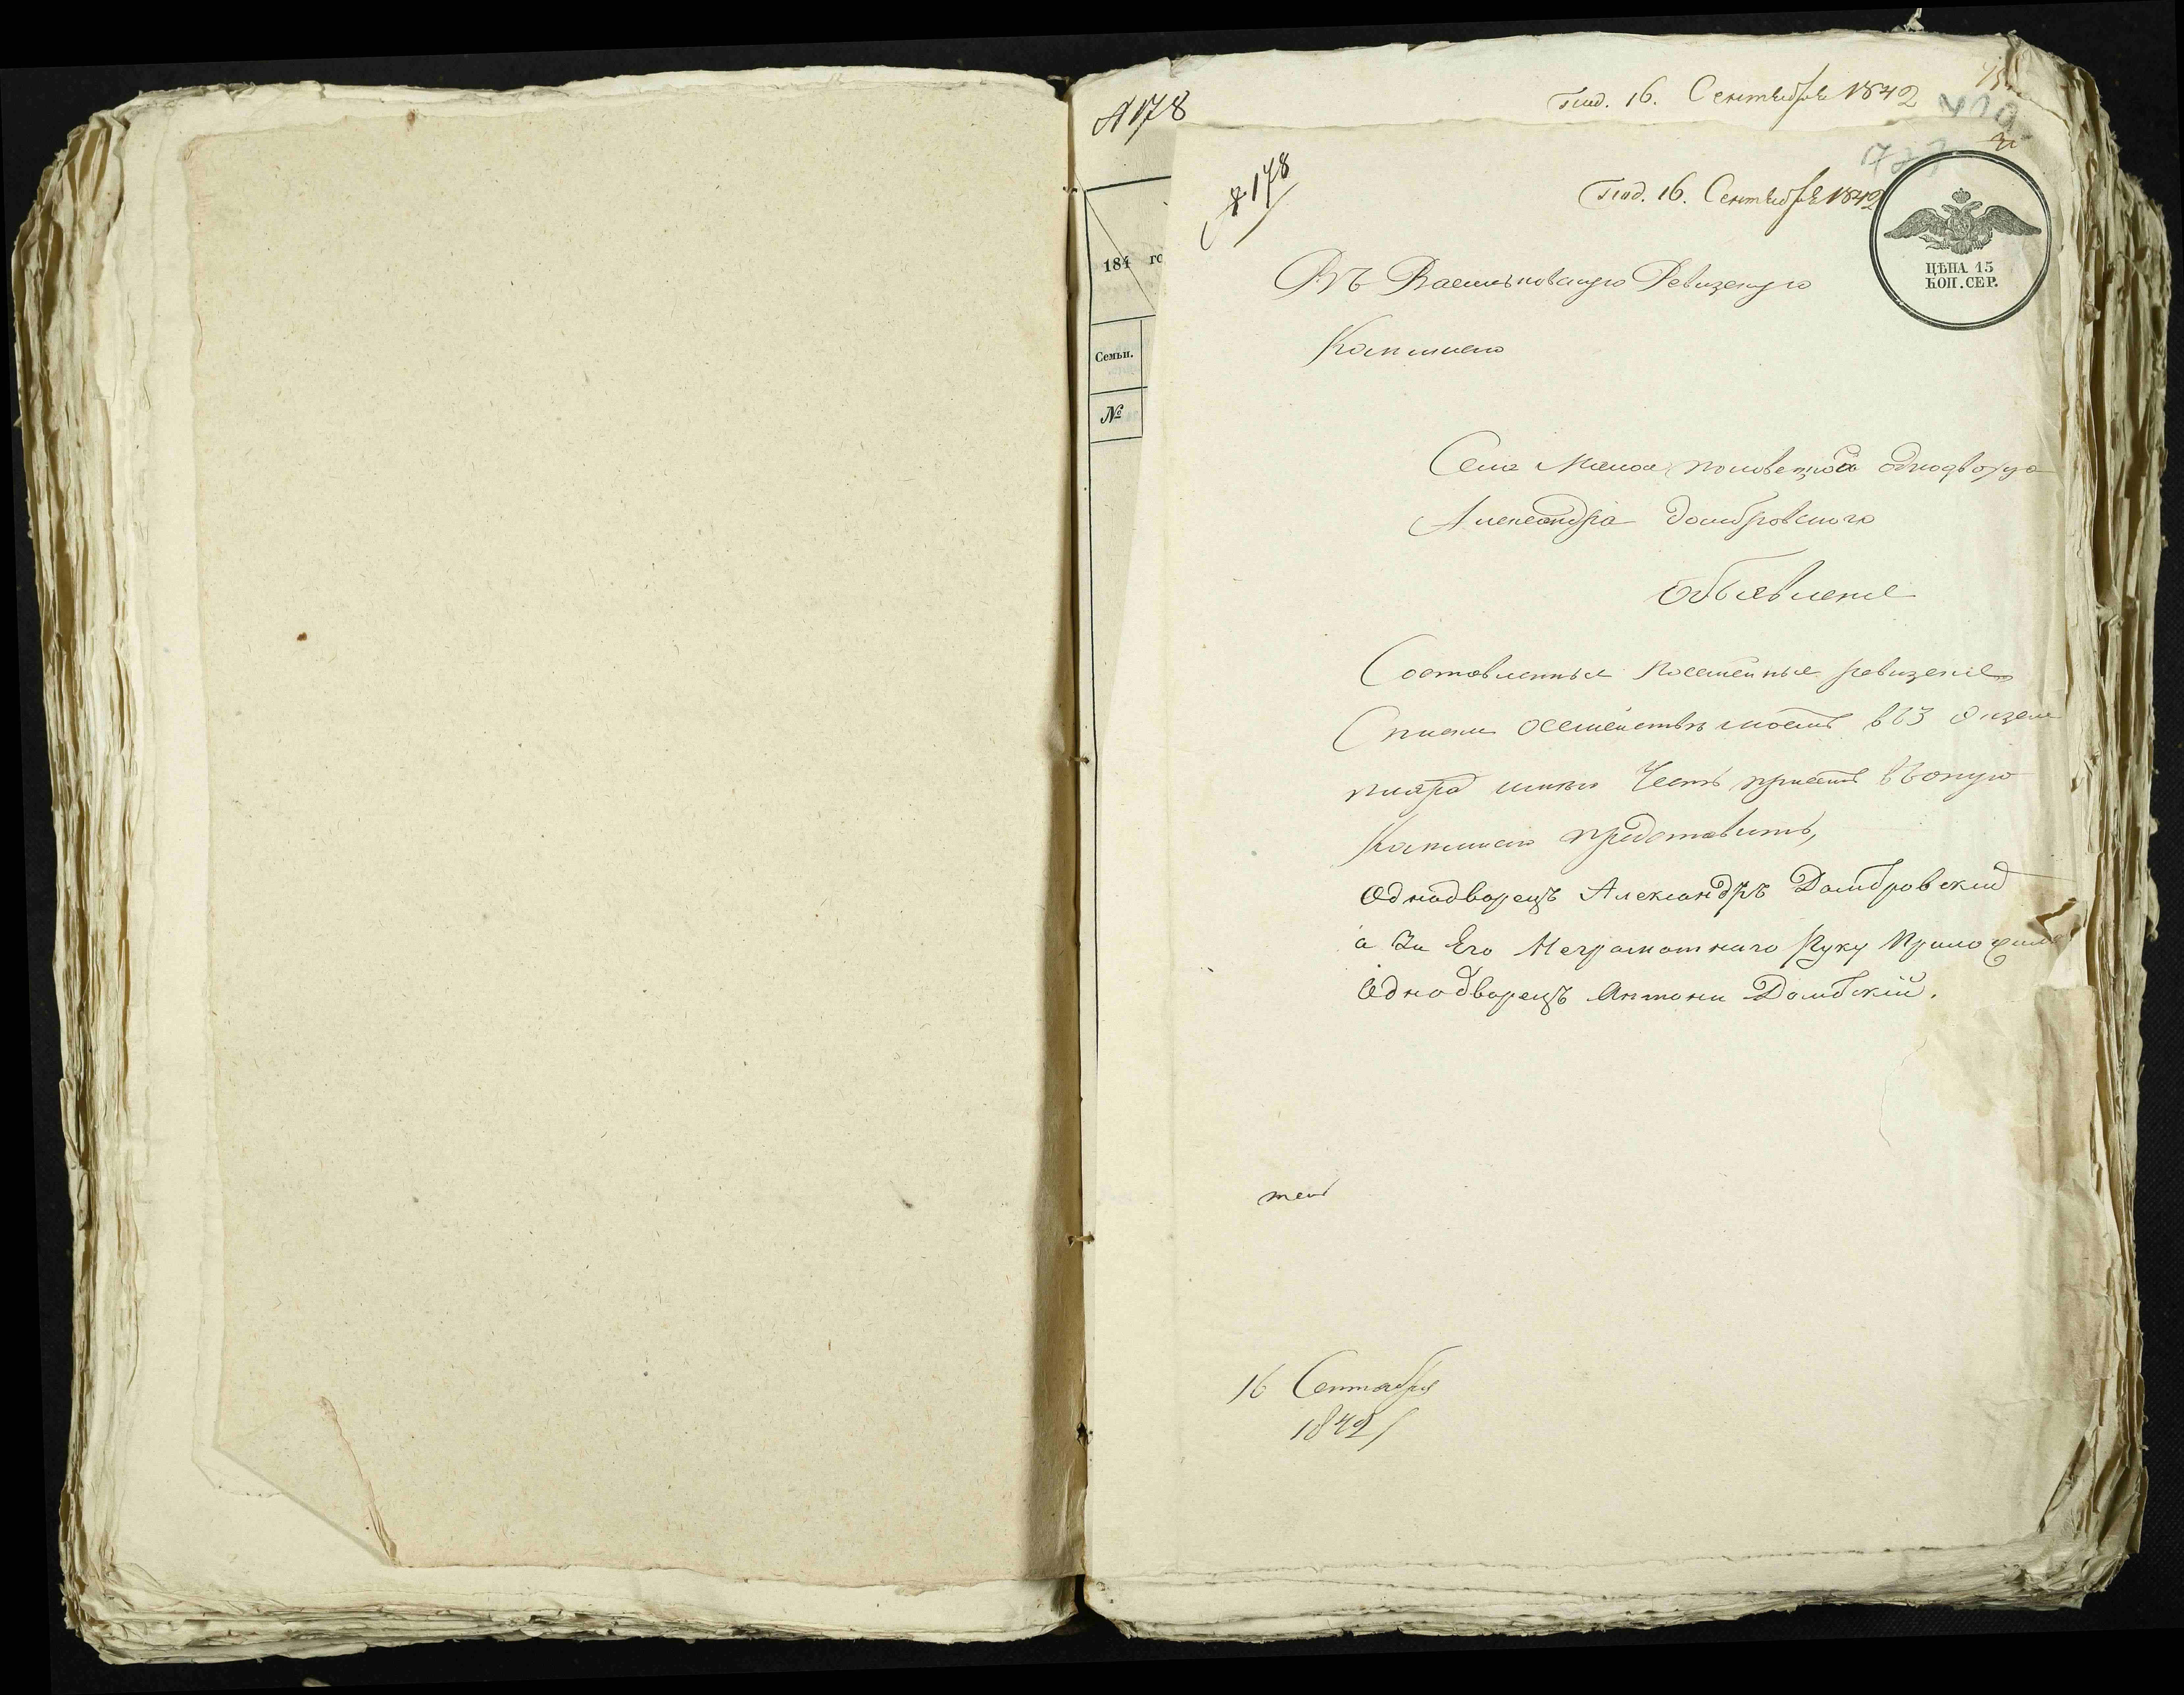 № 178
Под. 16. Сентября 1842
184 го
Семьи.
№
№ 178
Под. 16. Сентября 1842
ЦѢНА 15
КОП. СЕР.
Въ Васильковскую Ревизскую
Комисию
Села Малой половецкой однодворца
Александра домбровского
Объявление
Составленные посемейные ревизские
Списки осемействѣ моемъ въ 3 Экзем
плярахъ имѣю Честь присемъ въ оную
Комисию представить,
Однодворецъ Александръ Домбровский
а За Его Неграмотнаго Руку Приложилъ
Однодворецъ Антони Домбскій.
16 Сентября
1842